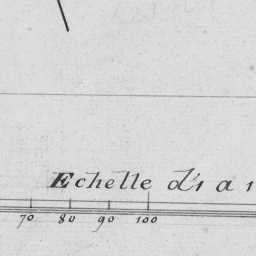 Echelle d'1 a 1
70 80 90 100